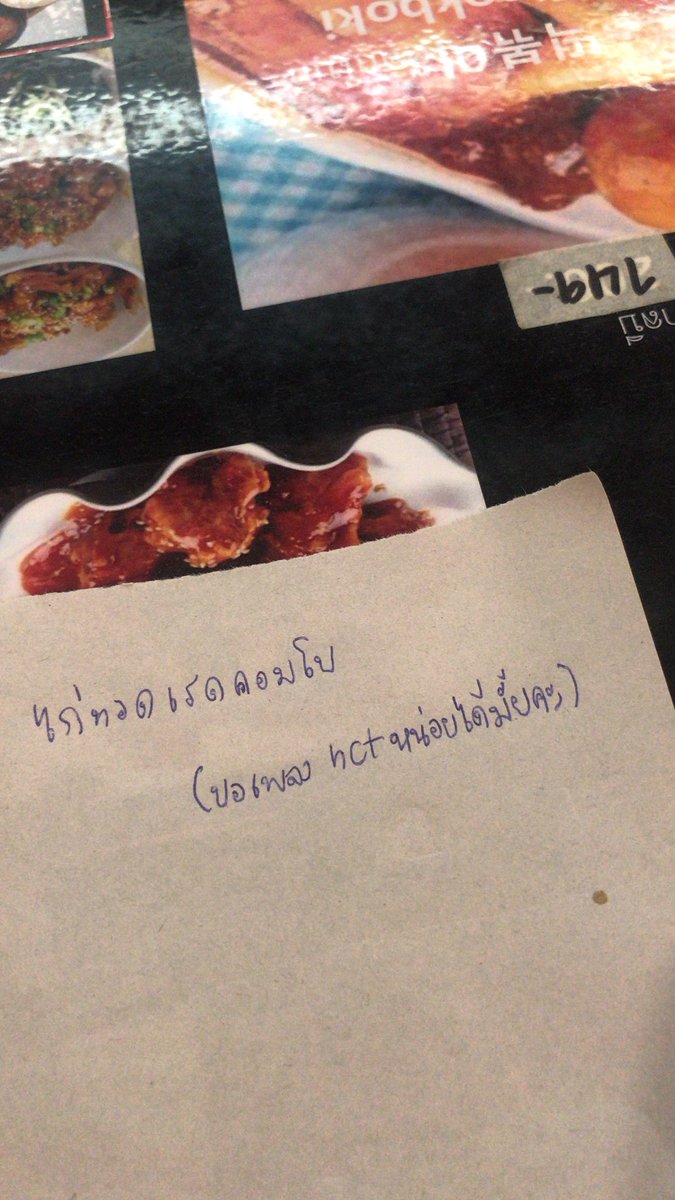 okboki
149-
แก่ทอดเรดคอมโบ
(ขอเพลง nct หน่อยได้มั้ยคะ)